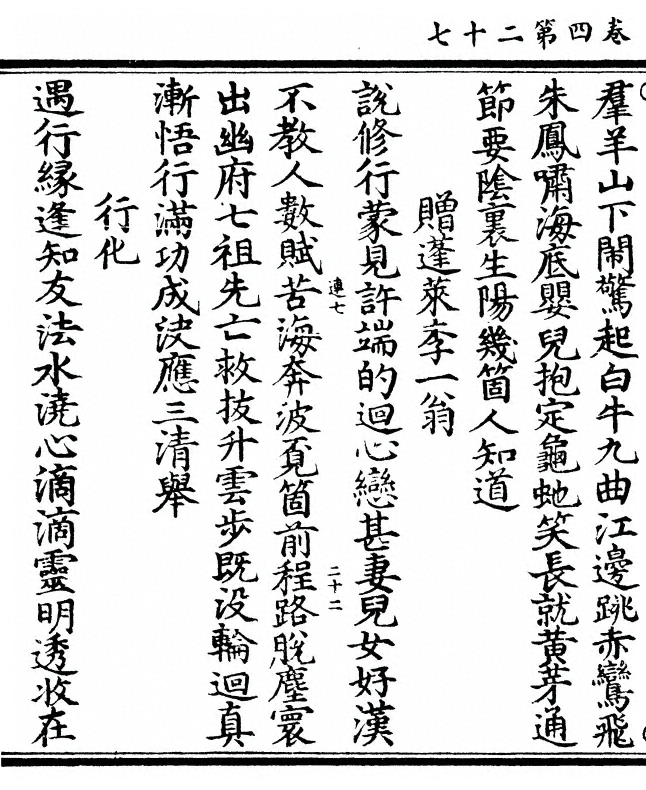 卷四第二十七
羣羊山下鬧驚起白牛九曲江邊跳赤鸞飛
朱鳳嘯海底嬰兒抱定龜虵笑長就黃芽通
節要陰裏生陽幾箇人知道
贈蓬萊李一翁
說修行蒙見許端的迴心戀甚妻兒女好漢
不教人數賦苦海奔波覔箇前程路脫塵寰
連七
二十二
出幽府七祖先亡救拔升雲步既没輪迴真
漸悟行滿功成決應三清舉
行化
遇行緣逢知友法水澆心滴滴靈明透收在